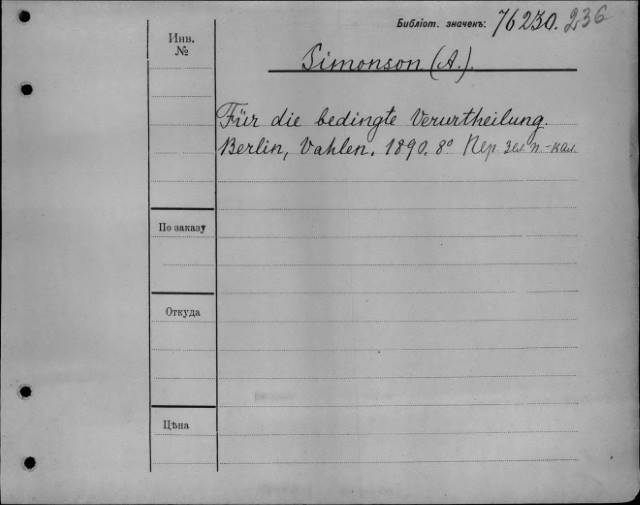 Библіот. значекъ: 76230. 236
Инв.
№
Simonson (A.).
Für die bedingte Verurtheilung.
Berlin, Vahlen. 1890. 8° Пер зел п.-кал
По заказу
Откуда
Цѣна